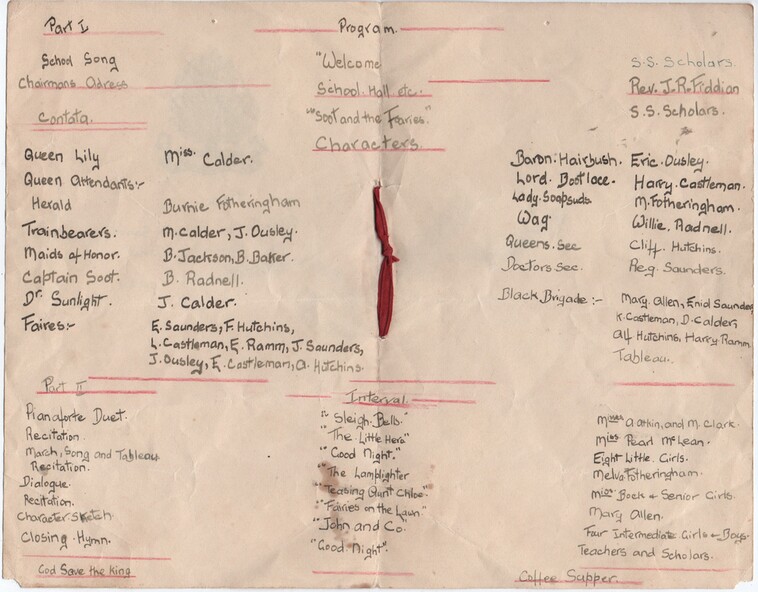 Part I Program.
School Song "Welcome S.S. Scholars.
Chairmans Adress School. Hall etc. Rev. J.R. Fiddian
Contata. "Soot and the Fairies." S.S. Scholars.
Characters.
Queen Lily Miss. Calder.
Queen Attendants:-
Herald Burnie Fotheringham
Trainbearers. M. Calder, J. Ousley.
Maids of Honor. B. Jackson, B. Baker.
Captain Soot. B. Radnell.
Dr. Sunlight. J. Calder.
Faires:- E. Saunders, F. Hutchins,
L. Castleman, E. Ramm, J. Saunders,
J. Ousley, E. Castleman, A. Hutchins.
Baron. Hairbush. Eric. Ousley.
Lord. Bootlace. Harry. Castleman.
Lady. Soapsuds M. Fotheringham.
Wag. Willie. Radnell.
Queens. Sec Cliff. Hutchins.
Doctors Sec. Reg. Saunders.
Black Brigade:- Mary. Allen, Enid Saunders
K. Castleman, D. Calder,
Alf Hutchins, Harry Ramm
Tableau.
Part II Interval.
Pianoforte Duet. "Sleigh-Bells." Misses A atkin, and M. Clark.
Recitation. "The Little Hero" Miss Pearl McLean.
March, Song and Tableau "Good Night." Eight Little. Girls.
Recitation. "The Lamplighter Melva Fotheringham.
Dialogue. "Teasing Aunt Chloe". Miss Bock & Senior Girls.
Recitation. "Fairies on the Lawn" Mary Allen.
Character Sketch "John and Co" Four Intermediate Girls & Boys.
Closing. Hymn. "Good Night". Teachers and Scholars.
God Save the King Coffee Supper.